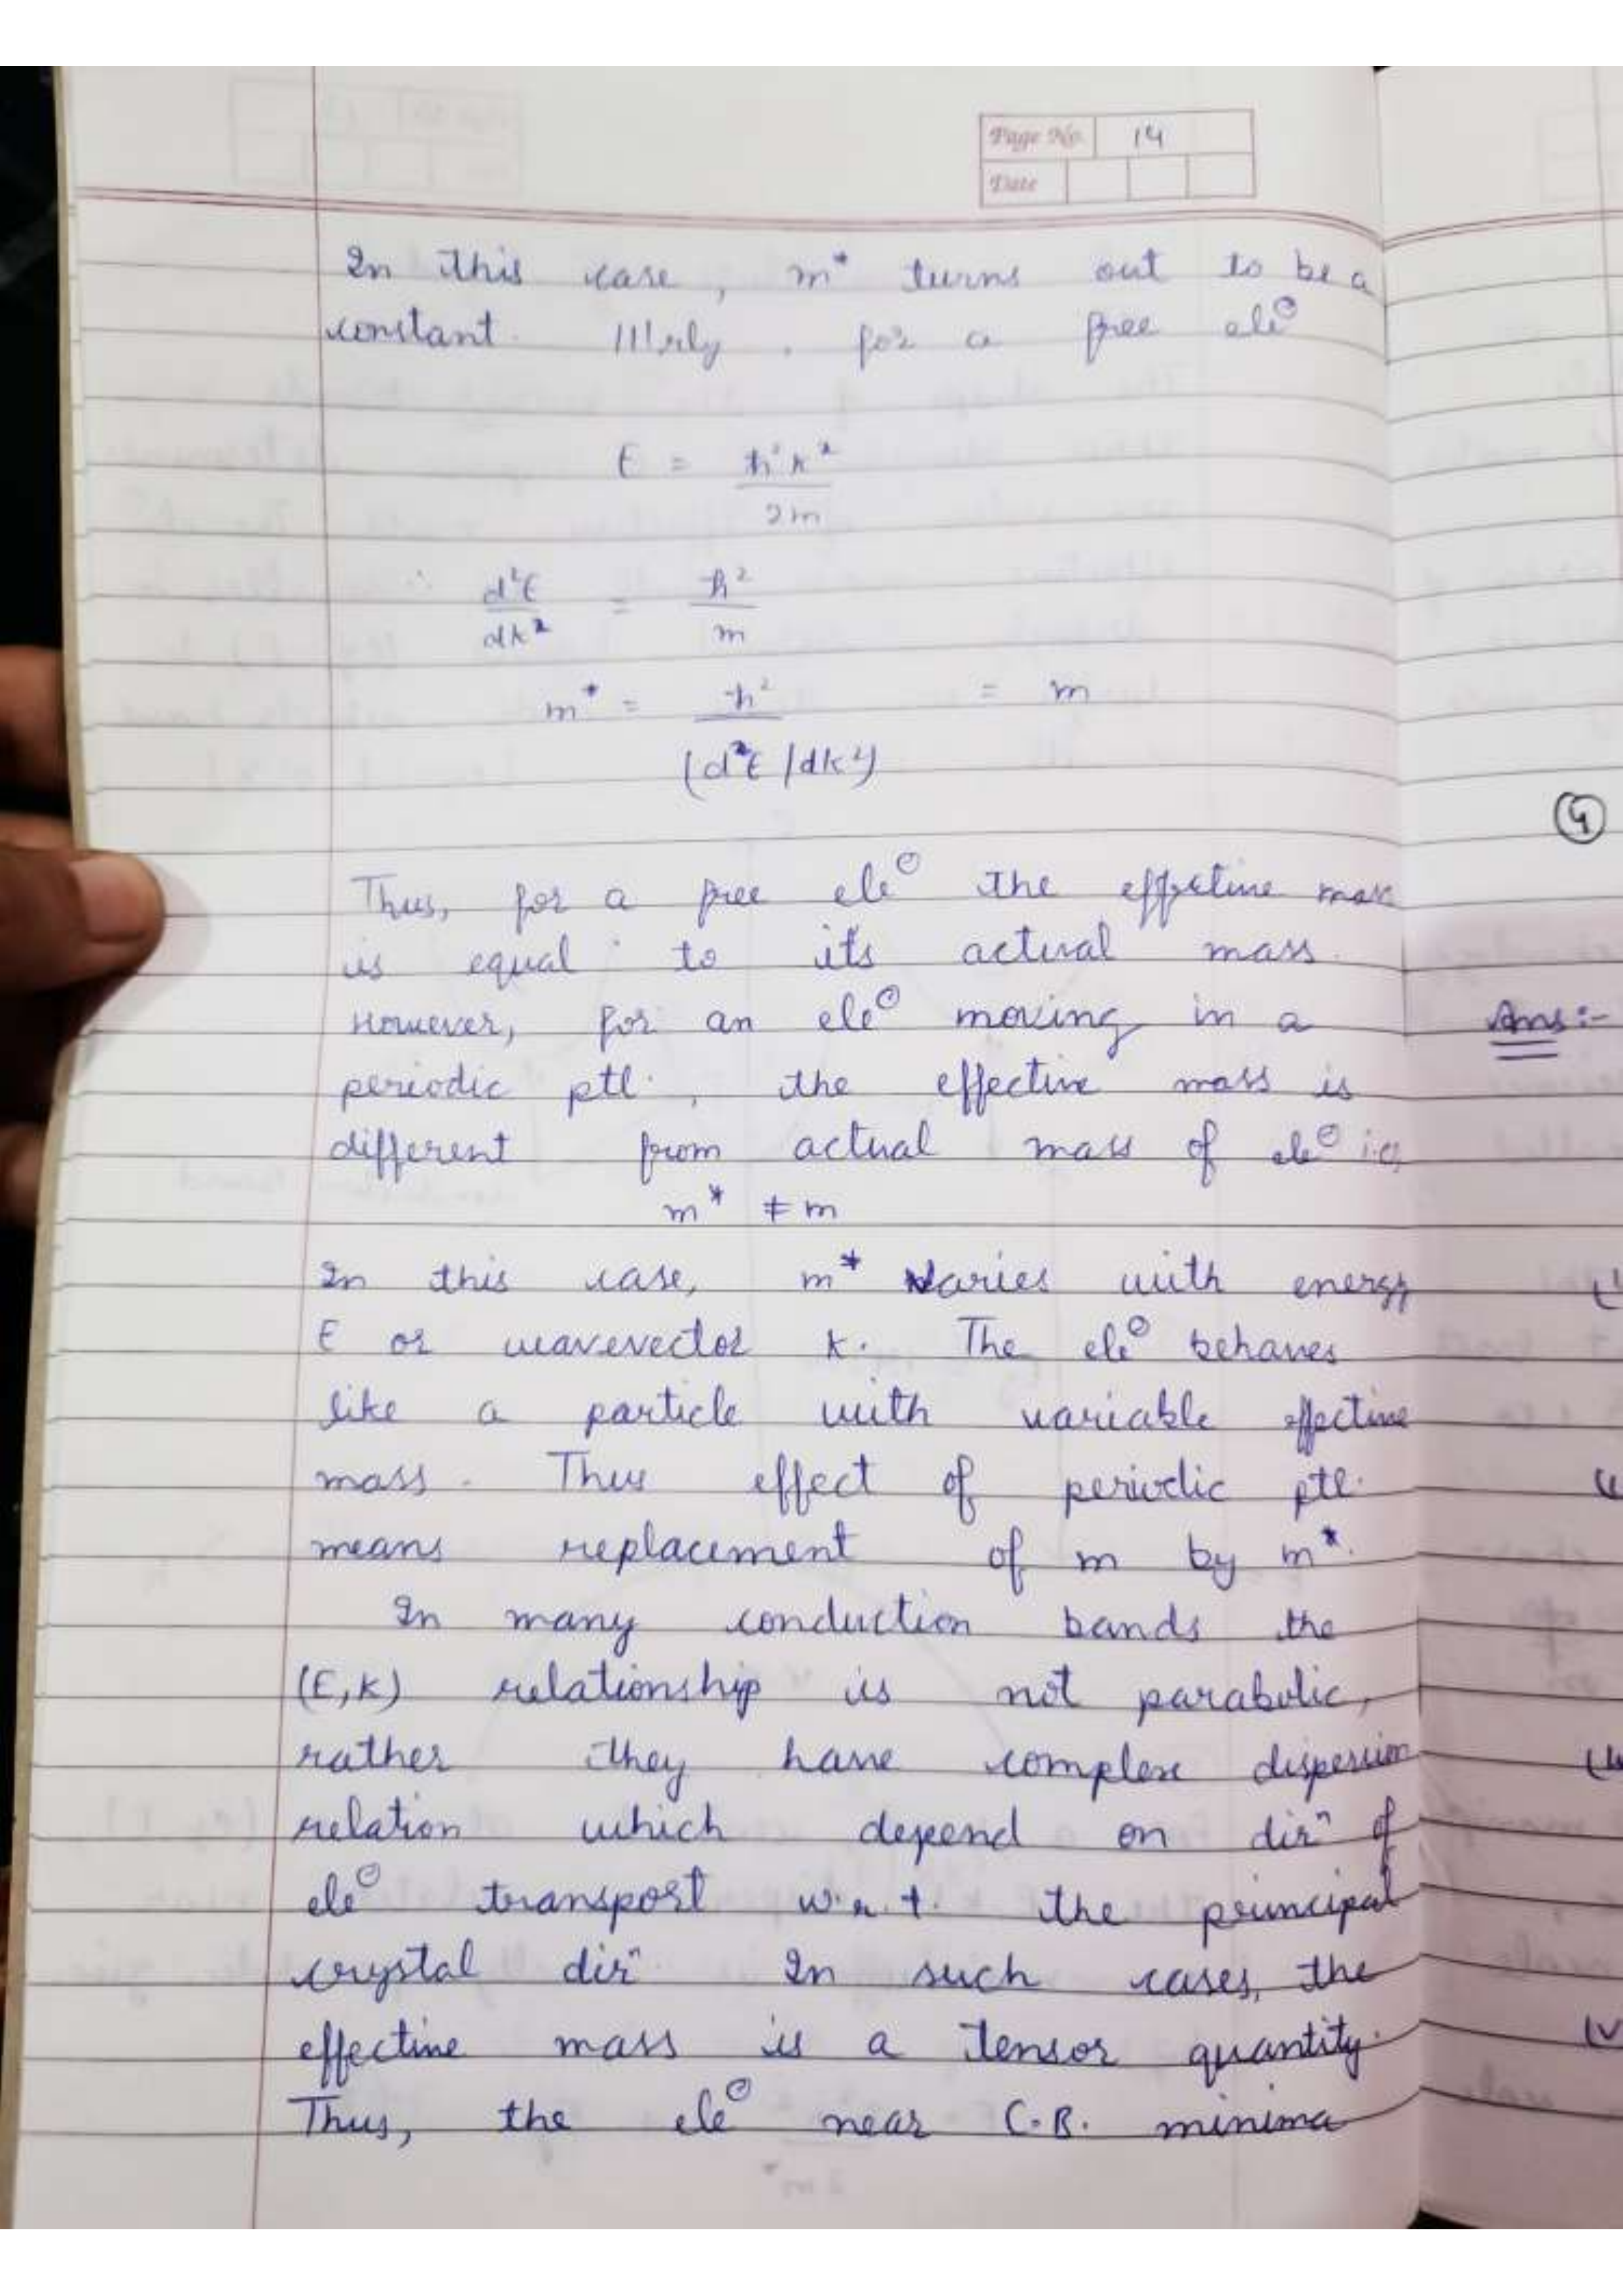 Page No. 14
Date
In this case, m* turns out to be a
constant. |||rly, for a free ele⊖
E = ħ²k²
2m
∴ d²E = ħ²
dk² m
m* = ħ² = m
(d²E/dk²)
Thus, for a free ele⊖ the effective mass
is equal to its actual mass.
However, for an ele⊖ moving in a
periodic ptl., the effective mass is
different from actual mass of ele⊖ i.e,
m* ≠ m
In this case, m* varies with energy
E or wavevector k. The ele⊖ behaves
like a particle with variable effective
mass. Thus effect of periodic ptl.
means replacement of m by m*.
In many conduction bands the
(E,K) relationship is not parabolic,
rather they have complex dispersion
relation which depend on dirⁿ of
ele⊖ transport w.r.t. the principal
crystal dirⁿ In such cases, the
effective mass is a tensor quantity.
Thus, the ele⊖ near C.B. minima
Ans:-